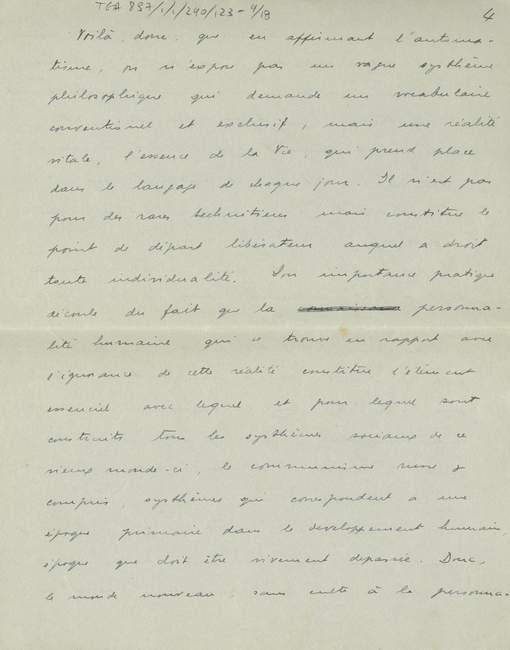 TGA 897/1/1/240/123-4/13
4
Voilà donc que en affirmant l'automa-
tisme, on n'expose pas un vague systhème
philosophique qui demande un vocabulaire
conventionnel et exclusif, mais une réalité
vitale, l'essence de la Vie, qui prend place
dans le langage de chaque jour. Il n'est pas
pour des rares techniciens mais constitue le
point de départ libérateur auquel a droit
toute individualité. Son importance pratique
découle du fait que la personna-
lité humaine qui se trouve en rapport avec
l'ignorance de cette réalité constitue l'élément
essenciel avec lequel et pour lequel sont
construits tous les systhèmes sociaux de ce
vieux monde-ci, le communisme russe y
compris, systhèmes qui correspondent a une
époque primaire dans le developpement humain,
époque que doit être vivement depassée. Donc,
le monde nouveau, sans culte à la personna-